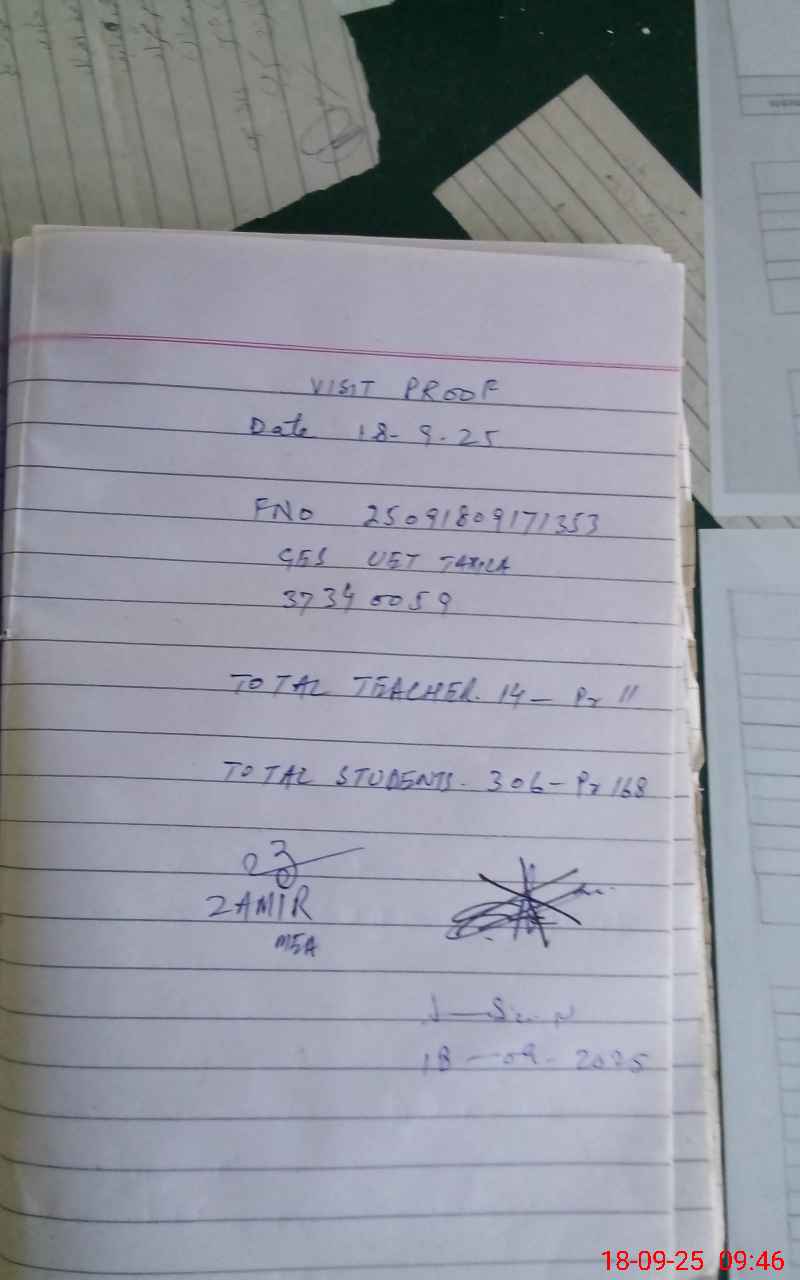 VISIT PROOF
Date 18-9-25
FNO 25091809171353
GES UET TAXILA
37340059
TOTAL TEACHER. 14 - Pr 11
TOTAL STUDENTS - 306 - Pr 168
ZAMIR
MEA
18-09-2025
18-09-25 09:46